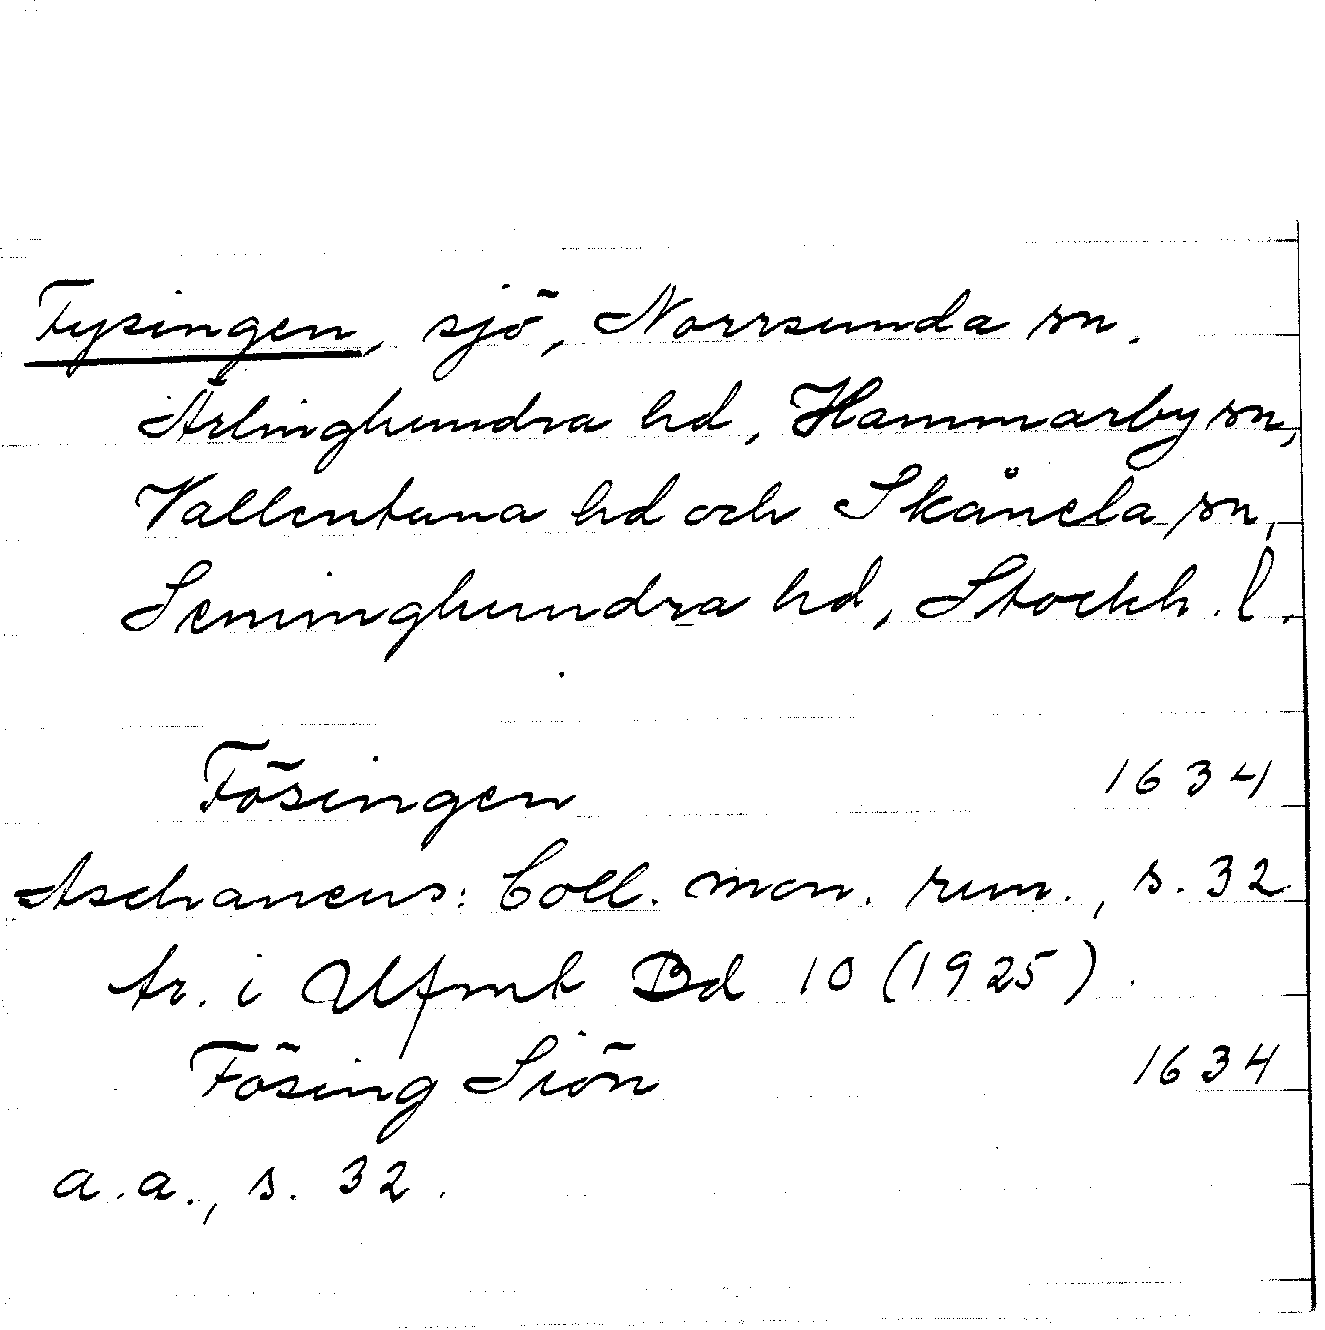 Fysingen, sjö, Norrsunda sn.
Ärlinghundra hd, Hammarby sn,
Vallentuna hd och Skånela sn,
Seminghundra hd, Stockh. l.
Fösingen 1634
Aschaneus: Coll. mon. run., s. 32
tr. i Ufmt Bd 10 (1925).
Fösing Siön 1634
a.a., s. 32.